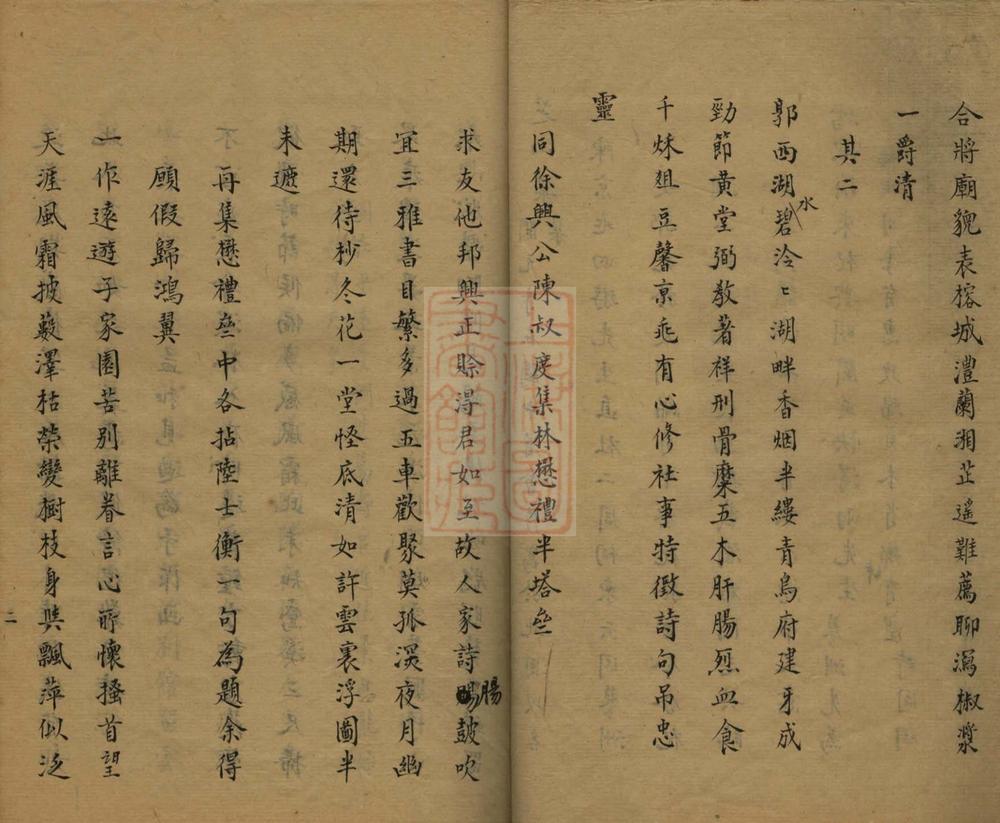 合將廟貌表榕城澧蘭湘芷遙難薦聊瀉椒漿
一爵清
其二
郭西湖水碧泠〻湖畔香烟半縷青烏府建牙成
勁節黄堂弼敎著祥刑骨糜五木肝腸烈血食
千秌俎豆馨京兆有心修社事特徵詩句吊忠
靈
同徐興公陳叔度集林懋禮半塔壘
求友他邦興正賒得君如至故人家詩腸鼓吹
宜三雅書目繁多過五車歡聚莫孤深夜月幽
期還待杪冬花一堂怪底清如許雲裏浮圖半
未遮
再集懋禮壘中各拈陸士衡一句為題余得
願假歸鴻翼
一作遠遊子家園苦别離眷言心所懷搔首望
天涯風霜披藪澤枯榮變樹枝身與飄萍似泛
二